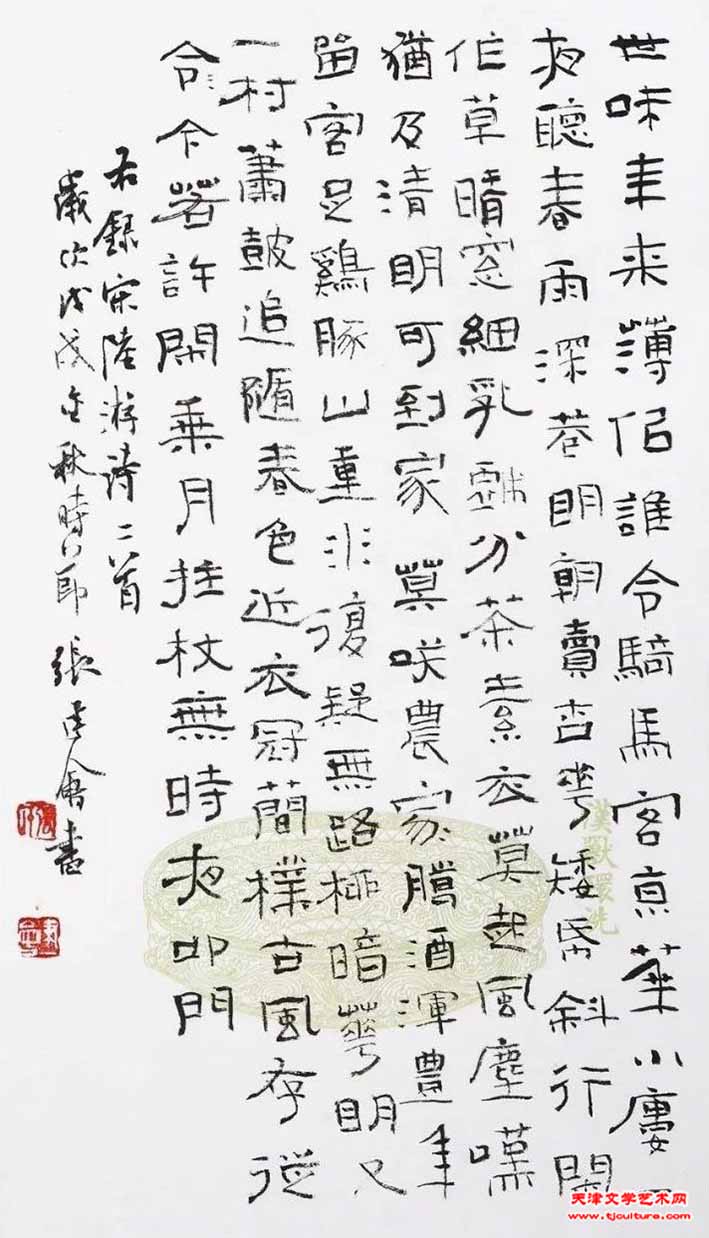 世味年来薄佀誰令騎馬客京華小廔一
夜聽春雨深巷明朝賣杏華矮帋斜行閒
作草晴窓細乳戲分茶素衣莫起風塵嘆
猶及清明可到家 莫咲農家臘酒渾豊年
留客足鷄豚山重水復疑无路桺暗華明又
一村簫鼓追隨春色近衣冠簡樸古風存從
今今若許閑乗月拄杖無時夜叩門
右録宋陸游詩二首
歲次戊戌金秋時節 張建會書
漢獸環洗
天津文学艺术网
www.tjculture.com